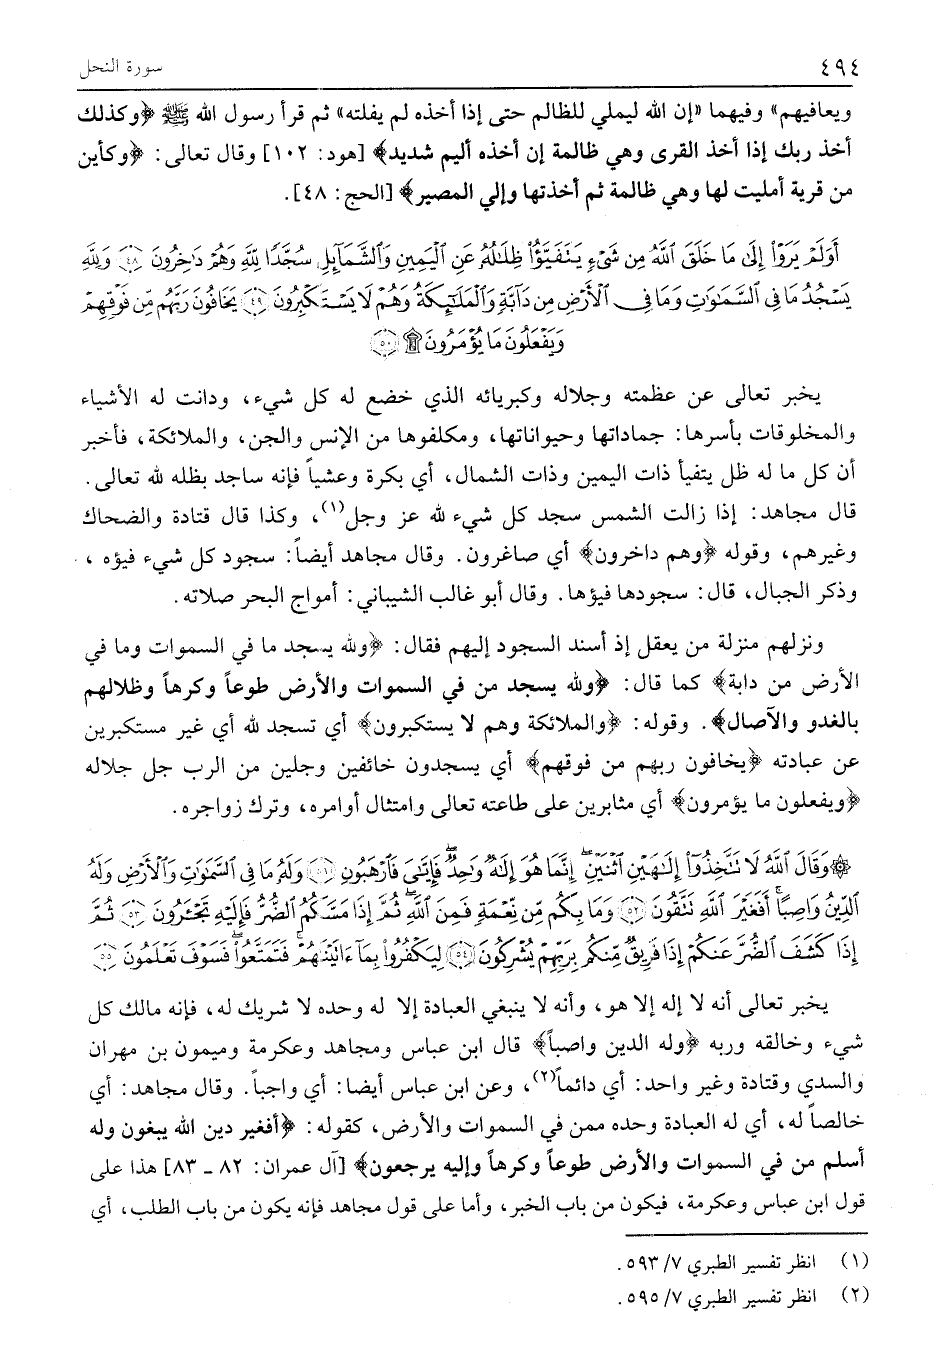 ٤٩٤
سورة النحل
ويعافيهم» وفيهما «إن الله ليملي للظالم حتى إذا أخذه لم يفلته» ثم قرأ رسول الله ﷺ ﴿وكذلك
أخذ ربك إذا أخذ القرى وهي ظالمة إن أخذه أليم شديد﴾ [هود: ١٠٢] وقال تعالى: ﴿وكأين
من قرية أمليت لها وهي ظالمة ثم أخذتها وإلي المصير﴾ [الحج: ٤٨].
أَوَلَمْ يَرَوْا۟ إِلَىٰ مَا خَلَقَ ٱللَّهُ مِن شَىْءٍ يَتَفَيَّؤُا۟ ظِلَـٰلُهُۥ عَنِ ٱلْيَمِينِ وَٱلشَّمَآئِلِ سُجَّدًا لِّلَّهِ وَهُمْ دَٰخِرُونَ ﴿٤٨﴾ وَلِلَّهِ
يَسْجُدُ مَا فِى ٱلسَّمَـٰوَٰتِ وَمَا فِى ٱلْأَرْضِ مِن دَآبَّةٍ وَٱلْمَلَـٰٓئِكَةُ وَهُمْ لَا يَسْتَكْبِرُونَ ﴿٤٩﴾ يَخَافُونَ رَبَّهُم مِّن فَوْقِهِمْ
وَيَفْعَلُونَ مَا يُؤْمَرُونَ ۩ ﴿٥٠﴾
يخبر تعالى عن عظمته وجلاله وكبريائه الذي خضع له كل شيء، ودانت له الأشياء
والمخلوقات بأسرها: جماداتها وحيواناتها، ومكلفوها من الإنس والجن، والملائكة، فأخبر
أن كل ما له ظل يتفيأ ذات اليمين وذات الشمال، أي بكرة وعشياً فإنه ساجد بظله لله تعالى.
قال مجاهد: إذا زالت الشمس سجد كل شيء لله عز وجل(١)، وكذا قال قتادة والضحاك
وغيرهم، وقوله ﴿وهم داخرون﴾ أي صاغرون. وقال مجاهد أيضاً: سجود كل شيء فيؤه،
وذكر الجبال، قال: سجودها فيؤها. وقال أبو غالب الشيباني: أمواج البحر صلاته.
ونزلهم منزلة من يعقل إذ أسند السجود إليهم فقال: ﴿ولله يسجد ما في السموات وما في
الأرض من دابة﴾ كما قال: ﴿ولله يسجد من في السموات والأرض طوعاً وكرهاً وظلالهم
بالغدو والآصال﴾. وقوله: ﴿والملائكة وهم لا يستكبرون﴾ أي تسجد لله أي غير مستكبرين
عن عبادته ﴿يخافون ربهم من فوقهم﴾ أي يسجدون خائفين وجلين من الرب جل جلاله
﴿ويفعلون ما يؤمرون﴾ أي مثابرين على طاعته تعالى وامتثال أوامره، وترك زواجره.
۞ وَقَالَ ٱللَّهُ لَا تَتَّخِذُوٓا۟ إِلَـٰهَيْنِ ٱثْنَيْنِ ۖ إِنَّمَا هُوَ إِلَـٰهٌ وَٰحِدٌ ۖ فَإِيَّـٰىَ فَٱرْهَبُونِ ﴿٥١﴾ وَلَهُۥ مَا فِى ٱلسَّمَـٰوَٰتِ وَٱلْأَرْضِ وَلَهُ
ٱلدِّينُ وَاصِبًا ۚ أَفَغَيْرَ ٱللَّهِ تَتَّقُونَ ﴿٥٢﴾ وَمَا بِكُم مِّن نِّعْمَةٍ فَمِنَ ٱللَّهِ ۖ ثُمَّ إِذَا مَسَّكُمُ ٱلضُّرُّ فَإِلَيْهِ تَجْـَٔرُونَ ﴿٥٣﴾ ثُمَّ
إِذَا كَشَفَ ٱلضُّرَّ عَنكُمْ إِذَا فَرِيقٌ مِّنكُم بِرَبِّهِمْ يُشْرِكُونَ ﴿٥٤﴾ لِيَكْفُرُوا۟ بِمَآ ءَاتَيْنَـٰهُمْ ۚ فَتَمَتَّعُوا۟ ۖ فَسَوْفَ تَعْلَمُونَ ﴿٥٥﴾
يخبر تعالى أنه لا إله إلا هو، وأنه لا ينبغي العبادة إلا له وحده لا شريك له، فإنه مالك كل
شيء وخالقه وربه ﴿وله الدين واصباً﴾ قال ابن عباس ومجاهد وعكرمة وميمون بن مهران
والسدي وقتادة وغير واحد: أي دائماً(٢)، وعن ابن عباس أيضا: أي واجباً. وقال مجاهد: أي
خالصاً له، أي له العبادة وحده ممن في السموات والأرض، كقوله: ﴿أفغير دين الله يبغون وله
أسلم من في السموات والأرض طوعاً وكرهاً وإليه يرجعون﴾ [آل عمران: ٨٢ ـ ٨٣] هذا على
قول ابن عباس وعكرمة، فيكون من باب الخبر، وأما على قول مجاهد فإنه يكون من باب الطلب، أي
(١) انظر تفسير الطبري ٧/ ٥٩٣.
(٢) انظر تفسير الطبري ٧/ ٥٩٥.